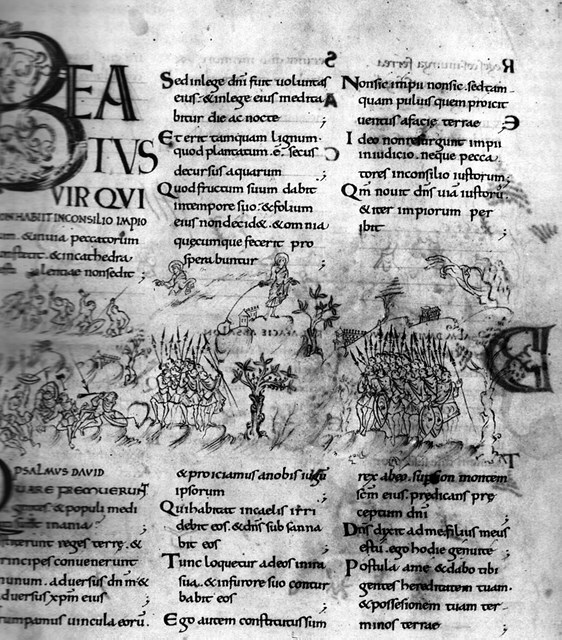 BEA
TVS
VIR QVI
NON HABIIT INCONSILIO IMPIO
rum. & inuia peccatorum
non stetit. & incathedra
lentiae nonsedit ;
Sed inlege dni fuit uoluntas
eius. & inlege eius medita
bitur die ac nocte ;
Et erit tamquam lignum.
quod plantatum .e. secus
decursus aquarum
Quod fructum suum dabit
intempore suo. & folium
eius non decid&. & omnia
quecumque fecerit pro
sperabuntur ;
Non sic impii non sic. sed tam
quam puluis quem proicit
uentus afacie terrae ;
Ideo non resurgunt impii
iniudicio. neque pecca
tores inconsilio iustorum ;
Qm nouit dns uiā iustorū
& iter impiorum per
ibit ;
PSALMUS DAVID
QUARE FREMUERUNT
gentes & populi medi
inania ;
Astiterunt reges terre. &
principes conuenerunt
inunum. aduersus dnm &
aduersus xpm eius ;
rumpamus uincula eorū.
& proiciamus anobis iugū
ipsorum
Qui habitat incaelis irri
debit eos. & dns subsanna
bit eos
Tunc loquetur adeos inira
sua. & infurore suo contur
babit eos ;
Ego autem constitutus sum
rex abeo. super sion montem
scm eius. predicans pre
ceptum dni ;
Dns dixit ad me filius meus
es tu. ego hodie genui te ;
Postula ame & dabo tibi
gentes hereditatem tuam.
& possesionem tuam ter
minos terrae ;